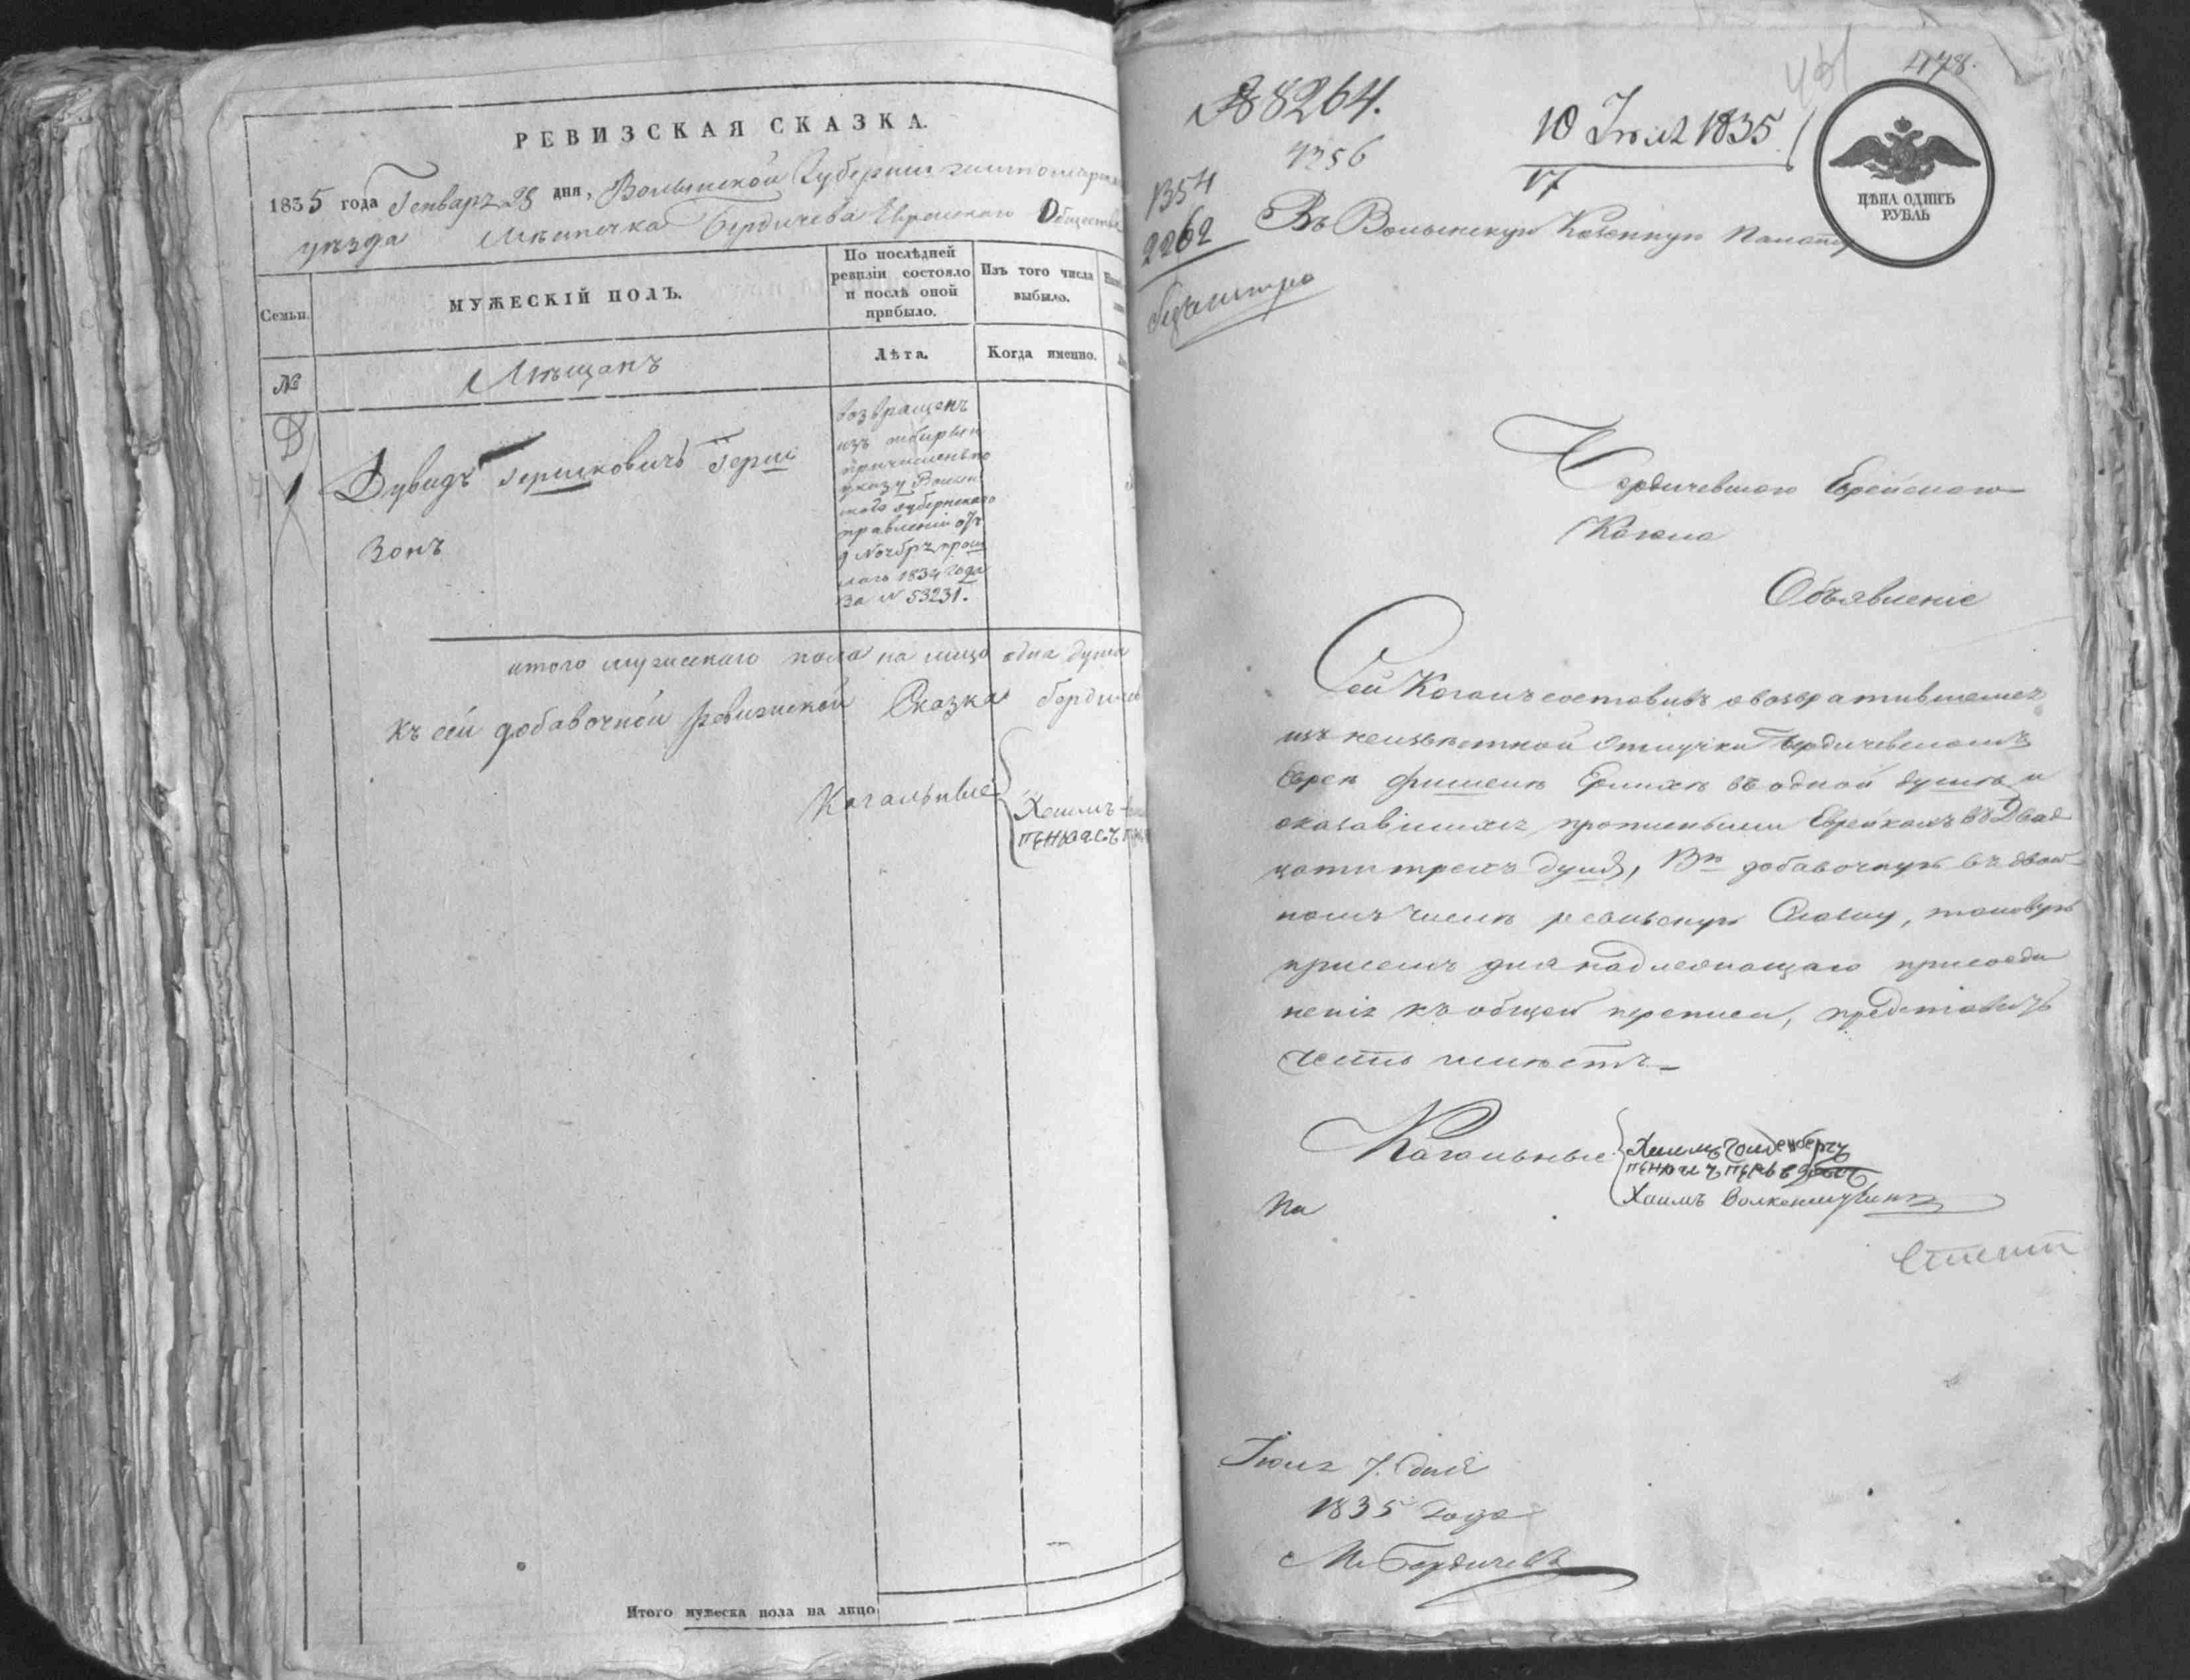 РЕВИЗСКАЯ СКАЗКА.
1835 года Генваря 28 дня, Волынской Губернии житомирска
уезда Мѣстечка Бердичева Еврейскаго Общества
Семьи.
МУЖЕСКІЙ ПОЛЪ.
По послѣдней
ревизіи состояло
и послѣ оной
прибыло.
Изъ того числа
выбыло.
№
Мѣщанъ
Лѣта.
Когда именно.
1
Дувидъ Гершковичъ Герш
зонъ
возвращенъ
изъ сибири и
причисленъ по
указу Волын
скаго губернскаго
правленія отъ
9 Ноября прош
лаго 1834 года
За № 53231.
итого мужескаго пола на лицо одна душа
Къ сей добавочной ревизской Сказке бердичев
Кагальные
Хаимъ
пѣнхасъ
Итого мужеска пола на лицо
478.
№ 8264.
7256
10 Іюля 1835
17
1354
2262
ЦѢНА ОДИНЪ
РУБЛЬ
Въ Волынскую Казенную Палату
Бердичевскаго Еврейскаго
Кагала
Объявленіе
Сей Кагалъ составивъ о возвратившемся
изъ неизвѣстной отлучки Бердичевскомъ
Еврее Фишеле Ерлихе въ одной душе и
оказавшихся прописными Еврейкахъ въ Двад
цати трехъ душъ, Въ добавочную въ двой
номъ числе ревизскую Сказку, таковую
присемъ для надлежащаго присоеди
ненія къ общей переписи, представить
честь имѣетъ
Кагальные
Хаимъ Голденбергъ
пѣнхасъ
Хаимъ Волкенштеинъ
На
Іюля 7. дня
1835 Года
М. Бердичевъ